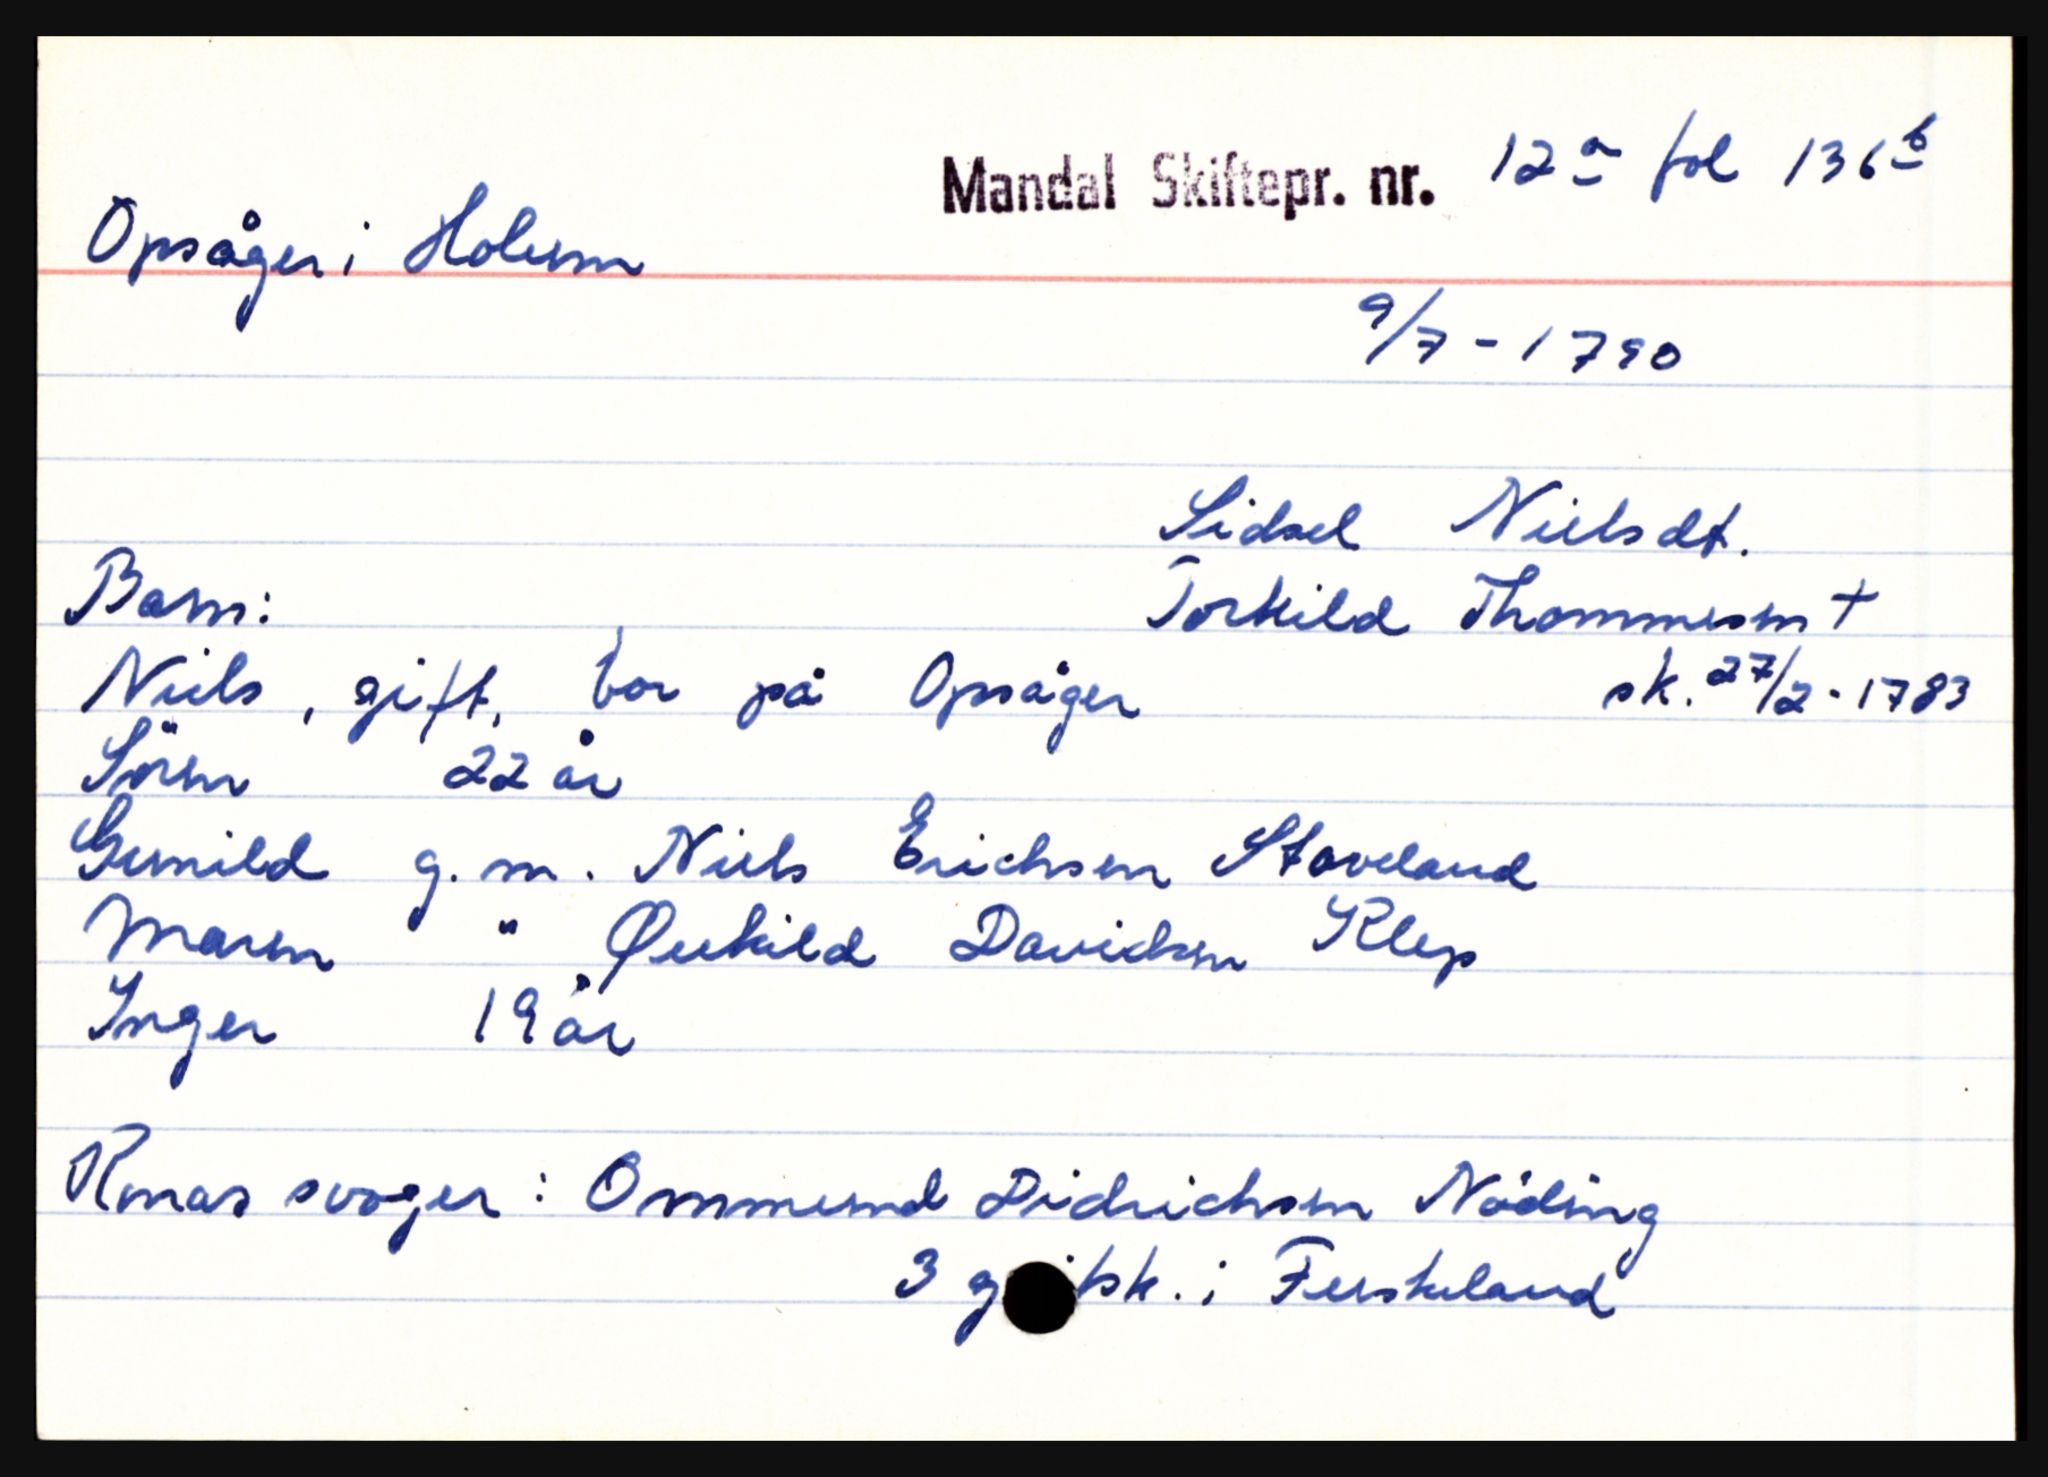 Mandal Skiftepr. nr. 12a fol 136b
Opsåger i Holum
9/7 - 1790
Sidsel Nielsdt.
Barn: Torkild Thommesen +
Niels, gift, bor på Opsåger sk. 27/2 - 1783
Sören 22 år
Gunild g. m. Niels Erichsen Staveland
Maren " Østkild Davidsen Klep
Inger 19 år
Konas svoger: Ommund Didrichsen Nöding
3 g sk. i Ferskeland